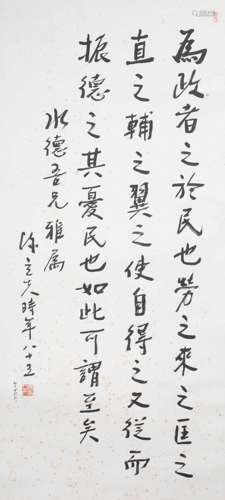 為政者之於民也勞之來之匡之
直之輔之翼之使自得之又從而
振德之其憂民也如此可謂至矣
水德吾兄雅屬
陳立夫時年八十五